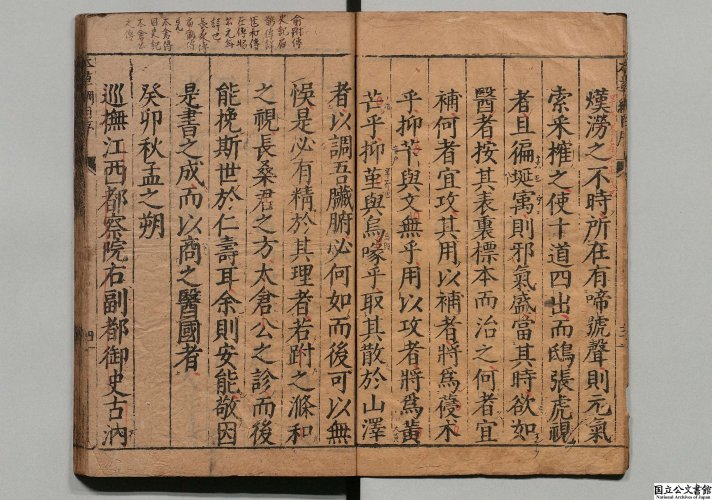 熯澇之不時所在有啼號聲則元氣
索釆搉之使十道四出而鴟張虎視
者且徧埏寓則邪氣盛當其時欲如
醫者按其表裏標本而治之何者宜
補何者宜攻其用以補者將爲蓡朮
乎抑芐與文無乎用以攻者將爲黃
芒乎抑堇與烏喙乎取其散於山澤
者以調吾臟腑必何如而後可以無
悞是必有精於其理者若跗之滌和
之視長桑君之方太倉公之診而後
能挽斯世於仁壽耳余則安能敬因
是書之成而以商之醫國者
癸卯秋孟之朔
巡撫江西都察院右副都御史古汭
四
国立公文書館
National Archives of Japan